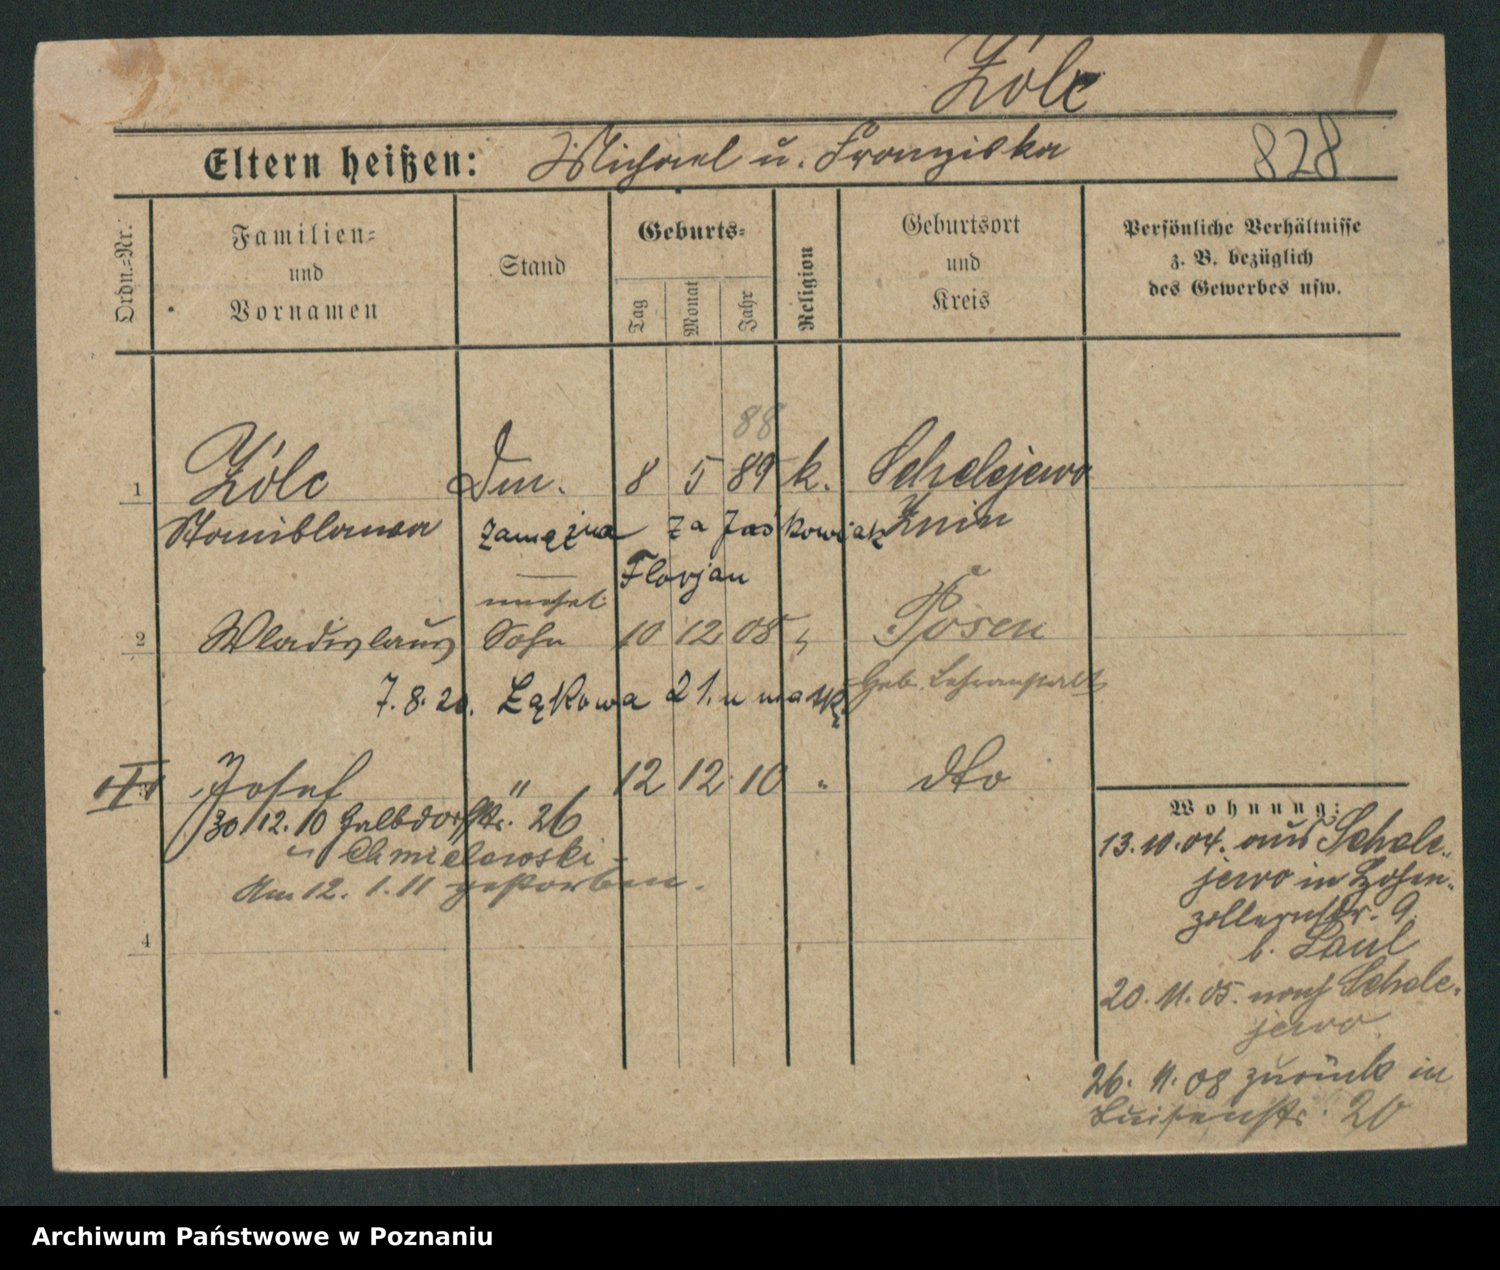 Żólc
Eltern heißen: Michael u. Franziska 828
Ordn.-Nr.
Familien- und Vornamen
Stand
Geburts-
Tag Monat Jahr
Religion
Geburtsort und Kreis
Persönliche Verhältnisse z. B. bezüglich des Gewerbes usw.
88
1 Żólc Dm. 8 5 89 k. Scholejewo
Stanislawa zamężna za Jaśkowiak Znin
Florjan
unehel.
2 Wladislaus Sohn 10 12 08 " Posen
Geb. Lehranstalt
7.8.20. Łąkowa 21. u matki
Josef " 12 12 10 " dto
30/12.10 Halbdorfstr. 26
u Chmielewski
Am 12. 1. 11 gestorben.
4
Wohnung:
13.10.04. aus Schole-
jewo in Hohen-
zollernstr. 9.
b.
20. 11. 05. nach Schole-
jewo
26. 11. 08 zurück in
Luisenstr. 20
Archiwum Państwowe w Poznaniu